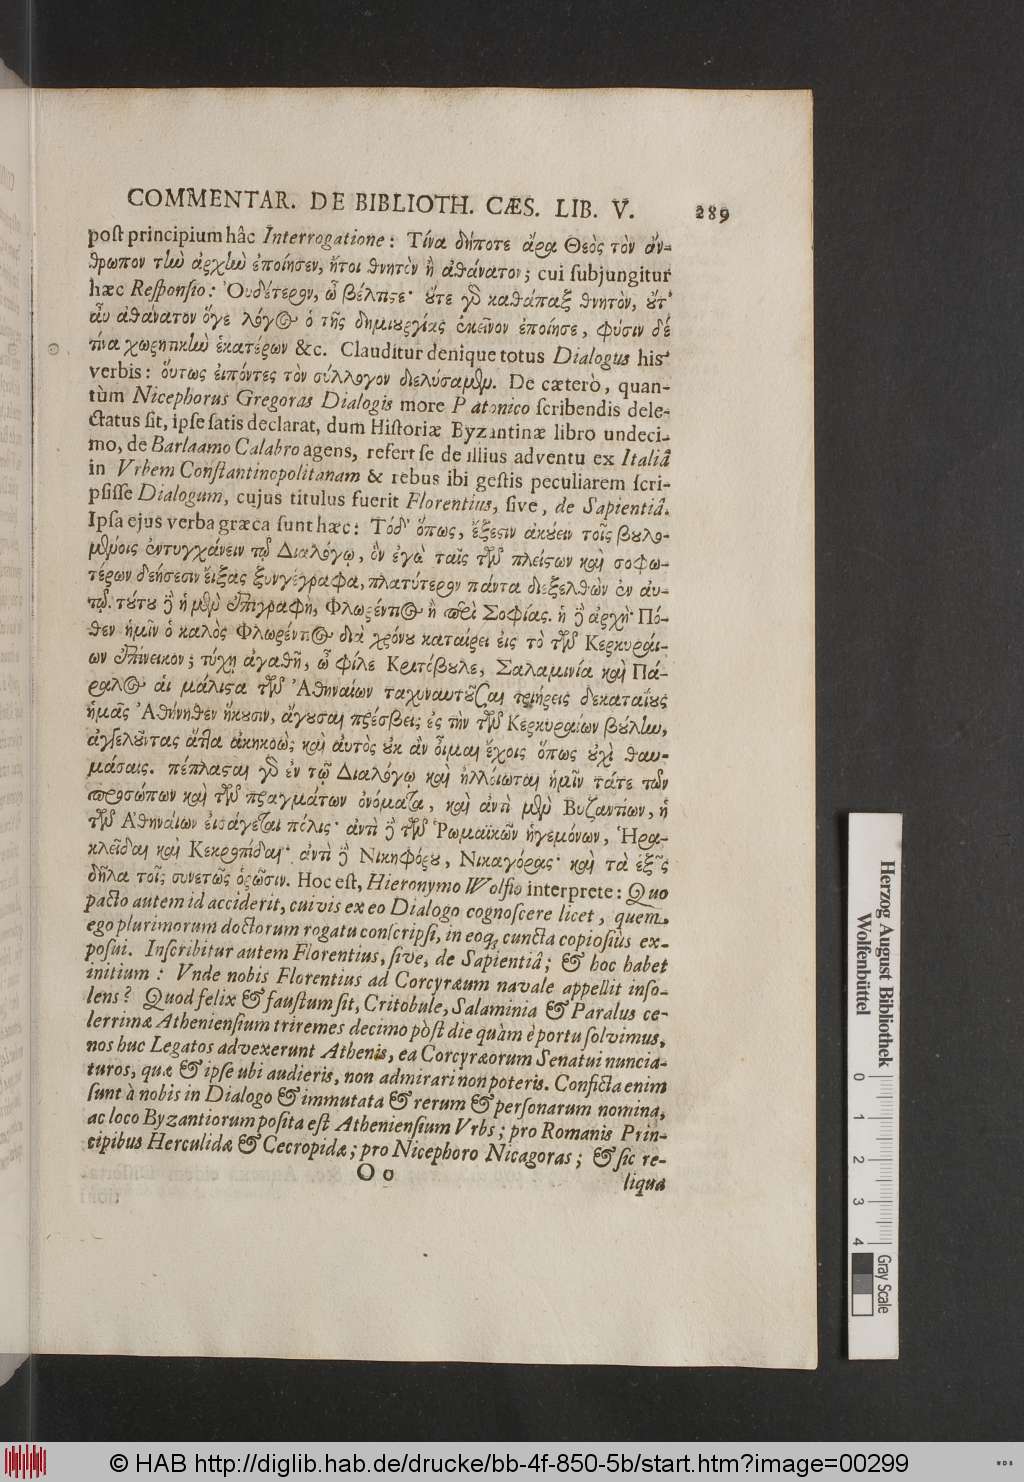 COMMENTAR. DE BIBLIOTH. CÆS. LIB. V. 289
poſt principium hâc Interrogatione: Τίνα δήποτε ἄρα Θεὸς τὸν ἄν-
θρωπον τἰω ἀρχἰω ἐποίησεν, ἤτοι θνητὸν ἢ ἀθάνατον; cui ſubjungitur
hæc Reſponſio: Ὀυδέτερον, ὦ βέλτιςε· ὔτε γδ καθάπαξ θνητὸν, ὔτ᾽
ἀυ ἀθάνατον ὅγε λόγος ὁ τῆς δημιυργίας ἐκεῖνον ἐποίησε, φύσιν δέ
τίνα χωρητικἰω ἑκατέρων &c. Clauditur denique totus Dialogus his
verbis: ὅυτως ἐιπόντες τὸν σύλλογον διελύσαμθμ. De cæterò, quan-
tùm Nicephorus Gregoras Dialogis more Platonico ſcribendis dele-
ctatus ſit, ipſe ſatis declarat, dum Hiſtoriæ Byzantinæ libro undeci-
mo, de Barlaamo Calabro agens, refert ſe de illius adventu ex Italiâ
in Vrbem Conſtantinopolitanam & rebus ibi geſtis peculiarem ſcri-
pſiſſe Dialogum, cujus titulus fuerit Florentius, ſive, de Sapientiâ.
Ipſa ejus verba græca ſunt hæc: Τόδ᾽ ὅπως, ἔξεςιν ἀκύειν τοῖς βυλο-
μθμοις ἐντυγχάνειν τῷ Διαλόγῳ, ὃν ἐγὼ ταῖς τῶν πλείςων καὶ σοφω-
τέρων δεήσεσιν ἔιξας ξυνγέγραφα, πλατύτερον πάντα διεξελθὼν ἐν ἀυ-
τῷ. τύτυ ἢ ἡ μθμ ἐπιγραφὴ, Φλωρέντιος ἢ περὶ Σοφίας. ἡ ἢ ἀρχὴ· Πό-
θεν ἡμῖν ὁ καλὸς Φλωρέντιος διὰ χρόνυ καταίρει ἐις τὸ τῶν Κερκυραί-
ων ἐπίνειον; τύχῃ ἀγαθῇ, ὦ φίλε Κριτόβυλε, Σαλαμινία καὶ Πά-
ραλος ἁι μάλιςα τῶν Ἀθηναίων ταχυναυτῦσαι τριήρεις δεκαταίυς
ἡμᾶς Ἀθήνηθεν ἥκυσιν, ἄγυσαι πρέσβεις ἐς τὴν τῶν Κερκυραίων βύλἰω,
ἀγγελῦντας ἅττα ἀκηκοὼς καὶ ἀυτὸς ὐκ ἂν ὦιμαι ἔχοις ὅπως ὐχὶ θαυ-
μάσαις. πέπλαςαι γδ ἐν τῷ Διαλόγῳ καὶ ἠλλοίωται ἡμῖν τάτε τῶν
προσώπων καὶ τῶν πραγμάτων ὀνόματα, καὶ ἀντὶ μθμ Βυζαντίων, ἡ
τῶν Ἀθηναίων ἐισάγεται πόλις· ἀντὶ ἢ τῶν Ῥωμαϊκῶν ἡγεμόνων, Ἡρα-
κλεῖδαι καὶ Κεκροπίδαι· ἀντὶ ἢ Νικηφόρυ, Νικαγόρας· καὶ τὰ ἑξῆς
δῆλα τοῖς συνετῶς ὁρῶσιν. Hoc eſt, Hieronymo Wolfio interprete: Quo
pacto autem id acciderit, cuivis ex eo Dialogo cognoſcere licet, quem
ego plurimorum doctorum rogatu conſcripſi, in eoq; cuncta copioſiùs ex-
poſui. Inſcribitur autem Florentius, ſive, de Sapientiâ; & hoc habet
initium: Vnde nobis Florentius ad Corcyræum navale appellit inſo-
lens? Quod felix & fauſtum ſit, Critobule, Salaminia & Paralus ce-
lerrimæ Athenienſium triremes decimo pòſt die quàm è portu ſolvimus,
nos huc Legatos advexerunt Athenis, ea Corcyræorum Senatui nuncia-
turos, quæ & ipſe ubi audieris, non admirari non poteris. Conficta enim
ſunt à nobis in Dialogo & immutata & rerum & perſonarum nomina,
ac loco Byzantiorum poſita eſt Athenienſium Vrbs; pro Romanis Prin-
cipibus Herculidæ & Cecropidæ; pro Nicephoro Nicagoras; & ſic re-
O o liqua
Herzog August Bibliothek
Wolfenbüttel
0 1 2 3 4
Gray Scale
© HAB http://diglib.hab.de/drucke/bb-4f-850-5b/start.htm?image=00299